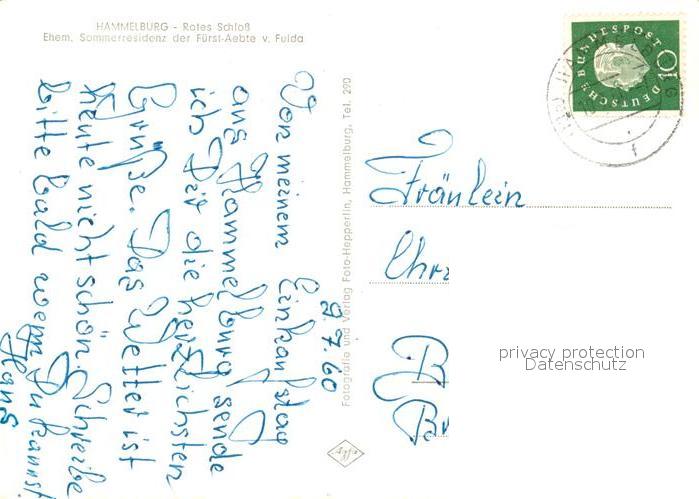 HAMMELBURG - Rotes Schloß
Ehem. Sommerresidenz der Fürst-Aebte v. Fulda
9.7.60
Von meinem Einkaufstag
aus Hammelburg sende
ich Dir die herzlichsten
Grüße. Das Wetter ist
heute nicht schön. Schreibe
bitte bald wenn Du kannst.
Hans
Fotografie und Verlag Foto-Hepperlin, Hammelburg, Tel. 290
DEUTSCHE BUNDESPOST
10
Fräulein
Chri
B
privacy protection
Datenschutz